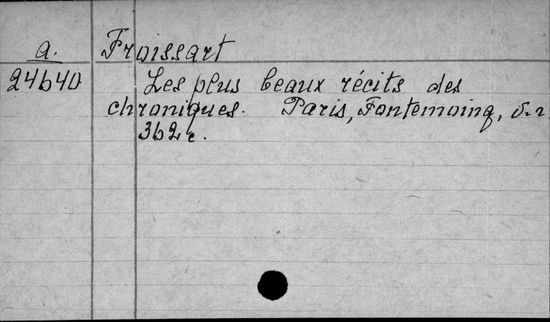 a. Froissart
24640 Les plus beaux récits des
chroniques. Paris, Fontemoing,
362